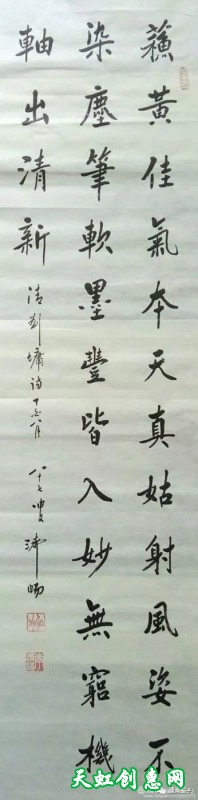 蘇黃佳氣本天真姑射風姿不
染塵筆軟墨豐皆入妙無窮機
軸出清新
清劉墉詩
八十七叟沛畅
天虹创惠网